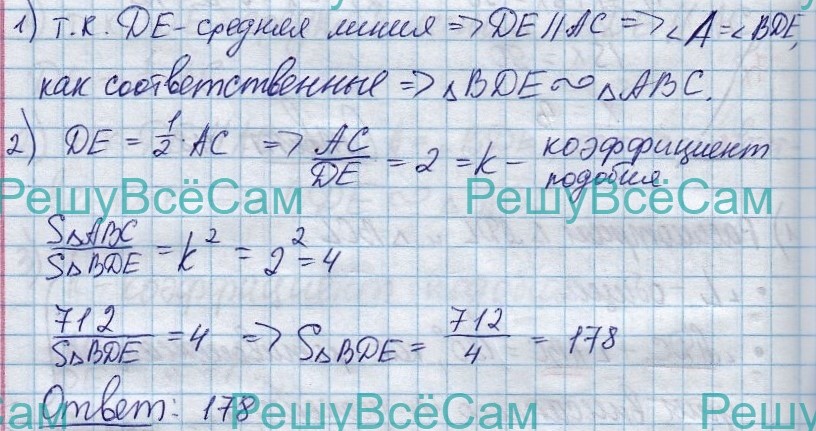 1) т.к. DE - средняя линия => DE || AC => ∠A = ∠BDE,
как соответственные => △BDE ∾ △ABC.
2) DE = 1/2 · AC => AC/DE = 2 = k - коэффициент подобия
РешуВсёСам РешуВсёСам
S△ABC/S△BDE = k² = 2² = 4
712/S△BDE = 4 => S△BDE = 712/4 = 178
Ответ: 178
Сам РешуВсёСам Решу